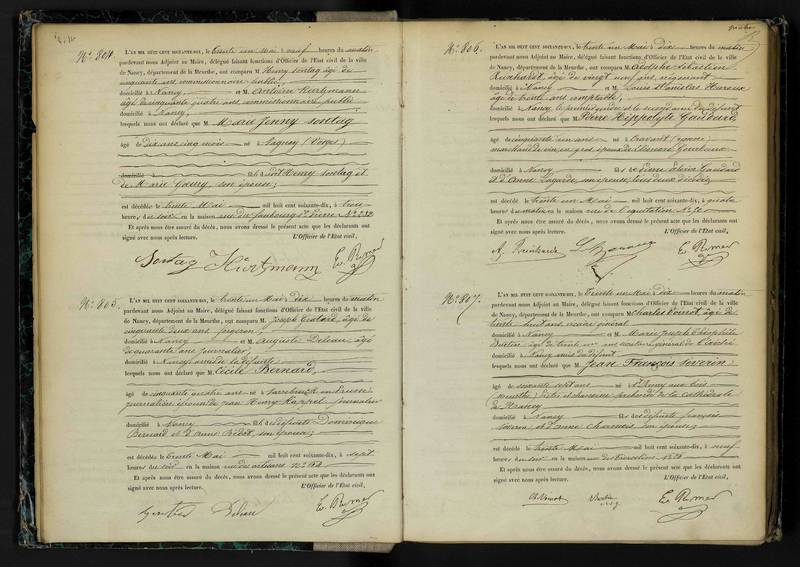 N° 804.
L'AN MIL HUIT CENT SOIXANTE-DIX, le trente un Mai à neuf heures du matin
pardevant nous Adjoint au Maire, délégué faisant fonctions d'Officier de l'Etat civil de la ville
de Nancy, département de la Meurthe, ont comparu M. Henry Sontag âgé de
cinquante ans commissionnaire public
domicilié à Nancy, et M. Antoine Hirtzmann
âgé de cinquante quatre ans commissionnaire public
domicilié à Nancy,
lesquels nous ont déclaré que M. Marie Jenny Sontag
âgé de dix ans cinq mois né à Lagney (Vosges)
domicilié à fils de dit Henry Sontag et
de Marie Gaury, son épouse;
est décédée le trente Mai mil huit cent soixante-dix, à trois
heures du soir en la maison rue du faubourg St Pierre N° 232
Et après nous être assuré du décès, nous avons dressé le présent acte que les déclarants ont
signé avec nous après lecture. L'Officier de l'Etat civil,
Sontag Hirtzmann
N° 805.
L'AN MIL HUIT CENT SOIXANTE-DIX, le trente un Mai à dix heures du matin
pardevant nous Adjoint au Maire, délégué faisant fonctions d'Officier de l'Etat civil de la ville
de Nancy, département de la Meurthe, ont comparu M. Joseph âgé de
cinquante deux ans
domicilié à Nancy et M. Auguste Deleau âgé
de quarante ans journalier,
domicilié à Nancy amis de la défunte
lesquels nous ont déclaré que M. Cécile Bernard,
âgé de cinquante quatre ans né à Sarrebruck en Prusse
journalière épouse de Jean Henry Happel journalier
domicilié à Nancy fille de défunts Dominique
Bernard et d'Anne son épouse;
est décédée le trente Mai mil huit cent soixante-dix, à sept
heures du soir en la maison rue des artisans N° 64
Et après nous être assuré du décès, nous avons dressé le présent acte que les déclarants ont
signé avec nous après lecture. L'Officier de l'Etat civil,
N° 806.
L'AN MIL HUIT CENT SOIXANTE-DIX, le trente un Mai à dix heures du matin
pardevant nous Adjoint au Maire, délégué faisant fonctions d'Officier de l'Etat civil de la ville
de Nancy, département de la Meurthe, ont comparu M. Adolphe Sébastien
âgé de vingt un ans, négociant
domicilié à Nancy et M. Louis Stanislas
âgé de trente ans comptable,
domicilié à Nancy, le premier gendre et le second ami du défunt
lesquels nous ont déclaré que M. Pierre Hippolyte Gaillard,
âgé de cinquante un ans né à Cravant (Yonne)
marchand de vin en gros époux de
domicilié à Nancy fils de Pierre
et d'Anne Lagarde, son épouse, tous deux décédés
est décédé le trente un Mai mil huit cent soixante-dix, à quatre
heures du matin en la maison rue de l'équitation N° 10
Et après nous être assuré du décès, nous avons dressé le présent acte que les déclarants ont
signé avec nous après lecture. L'Officier de l'Etat civil,
N° 807.
L'AN MIL HUIT CENT SOIXANTE-DIX, le trente un Mai à dix heures du matin
pardevant nous Adjoint au Maire, délégué faisant fonctions d'Officier de l'Etat civil de la ville
de Nancy, département de la Meurthe, ont comparu M. Charles âgé de
trente huit ans vicaire général
domicilié à Nancy et M. Marie Joseph Théophile
âgé de trente un ans secrétaire général de l'évêché
domicilié à Nancy amis du défunt
lesquels nous ont déclaré que M. Jean François Séverin,
âgé de soixante sept ans né à
prêtre et chanoine de la cathédrale
de Nancy
domicilié à Nancy fils de défunts François
Séverin et d'Anne son épouse;
est décédé le trente Mai mil huit cent soixante-dix, à neuf
heures du soir en la maison
Et après nous être assuré du décès, nous avons dressé le présent acte que les déclarants ont
signé avec nous après lecture. L'Officier de l'Etat civil,